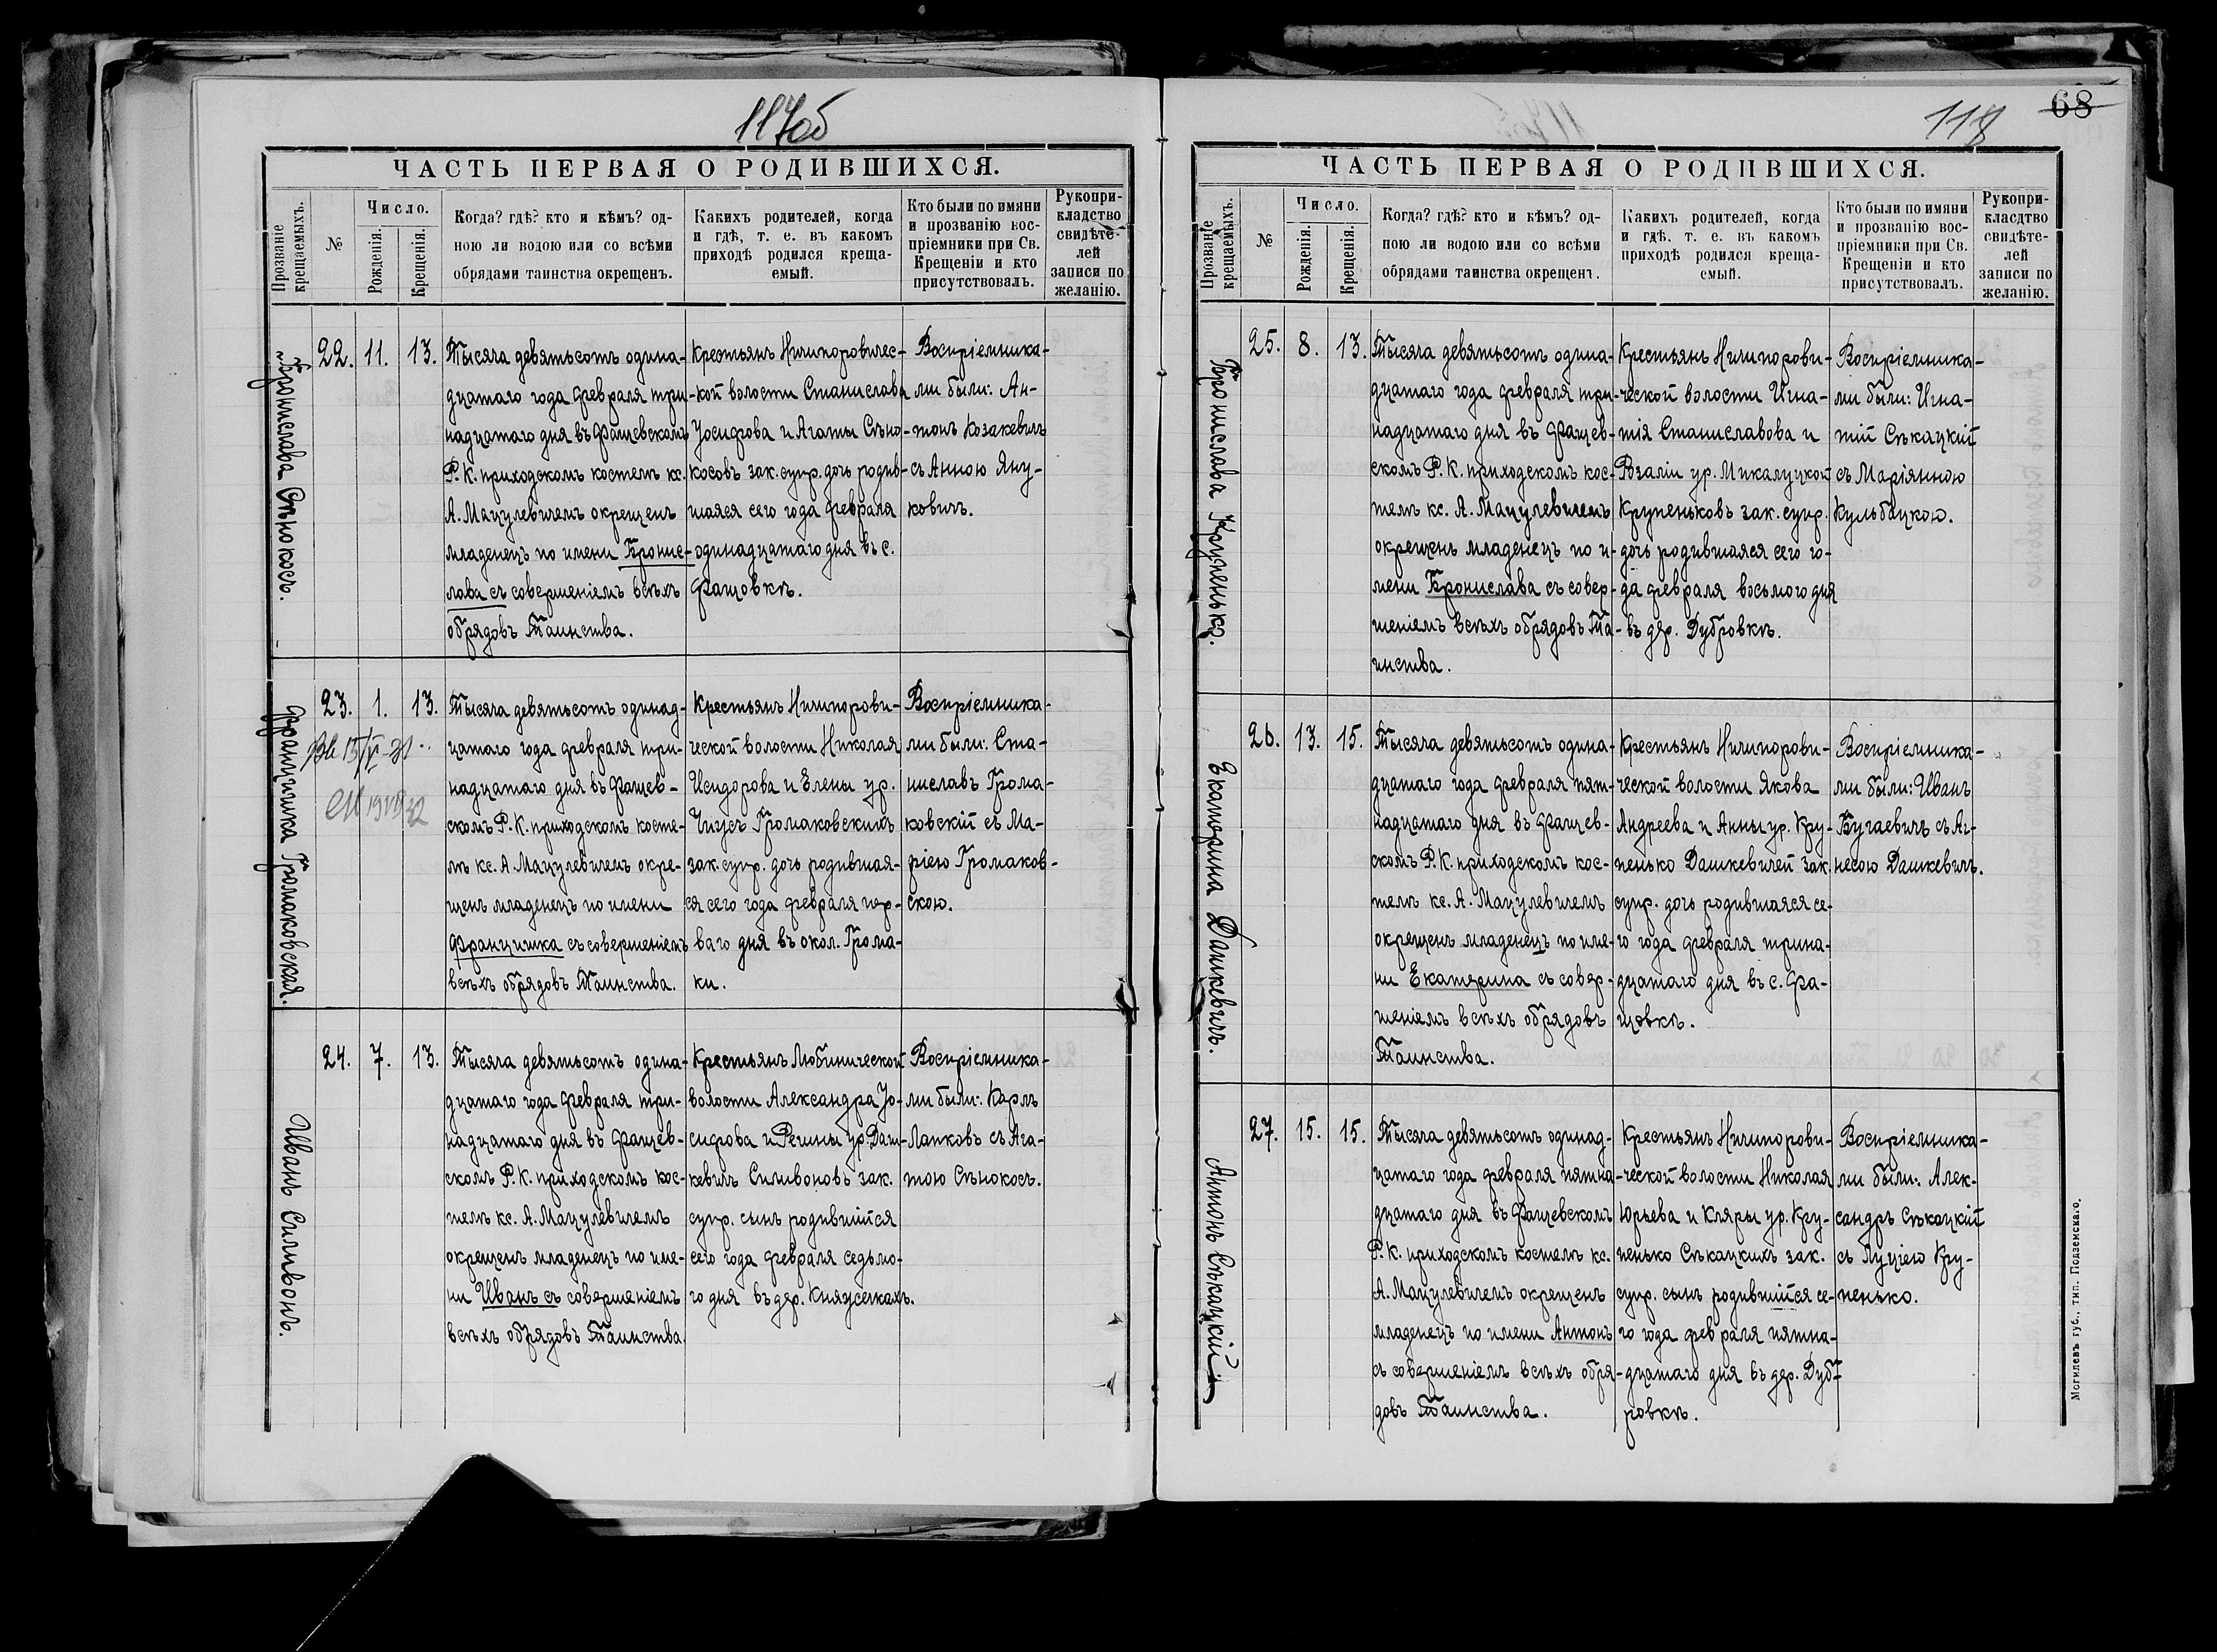 117об
ЧАСТЬ ПЕРВАЯ О РОДИВШИХСЯ.
Прозваніе крещаемыхъ.
№
Число.
Рожденія.
Крещенія.
Когда? гдѣ? кто и кѣмъ? од-
ною ли водою или со всѣми
обрядами таинства окрещенъ.
Какихъ родителей, когда
и гдѣ, т. е. въ какомъ
приходѣ родился креща-
емый.
Кто были по имяни
и прозванію вос-
пріемники при Св.
Крещеніи и кто
присутствовалъ.
Рукопри-
кладство
свидѣте-
лей
записи по
желанію.
Бронислава Сѣнокосъ.
22. 11. 13.
Тысяча девятьсотъ одина-
дцатаго года февраля три-
надцатаго дня въ Фащевскомъ
Р. К. приходскомъ костелѣ кс.
А. Мацулевичемъ окрещенъ
младенецъ по имени Бронис-
лава съ совершеніемъ всѣхъ
обрядовъ Таинства.
Крестьянъ Ничипоровичес-
кой волости Станислава
Іосифова и Агаты Сѣно-
косовъ зак. супр. дочь родив-
шаяся сего года февраля
одинадцатаго дня въ с.
Фащовкѣ.
Воспріемника-
ми были: Ан-
тонъ Козакевичъ
съ Анною Яну-
ковичъ.
Францишка Громаковская.
23. 1. 13.
Тысяча девятьсотъ одинад-
цатаго года февраля три-
надцатаго дня въ Фащев-
скомъ Р. К. приходскомъ косте-
лѣ кс. А. Мацулевичемъ окре-
щенъ младенецъ по имени
Францишка съ совершеніемъ
всѣхъ обрядовъ Таинства.
Крестьянъ Ничипорови-
ческой волости Николая
Исидорова и Елены ур.
Чиусъ Громаковскихъ
зак. супр. дочь родившая-
ся сего года февраля пер-
ваго дня въ окол. Грома-
ки.
Воспріемника-
ми были: Ста-
ниславъ Грома-
ковскій съ Ма-
ріею Громаков-
скою.
Иванъ Силивонъ.
24. 7. 13.
Тысяча девятьсотъ одина-
дцатаго года февраля три-
надцатаго дня въ Фащев-
скомъ Р. К. приходскомъ кос-
телѣ кс. А. Мацулевичемъ
окрещенъ младенецъ по име-
ни Иванъ съ совершеніемъ
всѣхъ обрядовъ Таинства.
Крестьянъ Любинической
волости Александра Іо-
сифова и Регины ур. Даш-
кевичъ Силивоновъ зак.
супр. сынъ родившійся
сего года февраля седьмо-
го дня въ дер. Княусечкахъ.
Воспріемника-
ми были: Карлъ
Лапковъ съ Ага-
тою Сѣнокосъ.
68
118
ЧАСТЬ ПЕРВАЯ О РОДИВШИХСЯ.
Прозваніе крещаемыхъ.
№
Число.
Рожденія.
Крещенія.
Когда? гдѣ? кто и кѣмъ? од-
ною ли водою или со всѣми
обрядами таинства окрещенъ.
Какихъ родителей, когда
и гдѣ, т. е. въ какомъ
приходѣ родился креща-
емый.
Кто были по имяни
и прозванію вос-
пріемники при Св.
Крещеніи и кто
присутствовалъ.
Рукопри-
класдтво
свидѣте-
лей
записи по
желанію.
Бронислава Крупенько.
25. 8. 13.
Тысяча девятьсотъ одина-
дцатаго года февраля три-
надцатаго дня въ Фащев-
скомъ Р. К. приходскомъ кос-
телѣ кс. А. Мацулевичемъ
окрещенъ младенецъ по и-
мени Бронислава съ совер-
шеніемъ всѣхъ обрядовъ Та-
инства.
Крестьянъ Ничипорови-
ческой волости Игна-
тія Станиславова и
Розаліи ур. Микалуцкой
Крупеньковъ зак. супр.
дочь родившаяся сего го-
да февраля восьмого дня
въ дер. Дубровкѣ.
Воспріемника-
ми были: Игна-
тій Сѣкацкій
съ Маріянною
Кульбацкою.
Екатерина Дашкевичъ.
26. 13. 15.
Тысяча девятьсотъ одина-
дцатаго года февраля пят-
надцатаго дня въ Фащев-
скомъ Р. К. приходскомъ кос-
телѣ кс. А. Мацулевичемъ
окрещенъ младенецъ по име-
ни Екатерина съ совер-
шеніемъ всѣхъ обрядовъ
Таинства.
Крестьянъ Ничипорови-
ческой волости Якова
Андреева и Анны ур. Кру-
пенько Дашкевичей зак.
супр. дочь родившаяся се-
го года февраля трина-
дцатаго дня въ с. Фа-
щовкѣ.
Воспріемника-
ми были: Иванъ
Бугаевичъ съ Аг-
несою Дашкевичъ.
Антонъ Сѣкацкій
27. 15. 15.
Тысяча девятьсотъ одинад-
цатаго года февраля пятна-
дцатаго дня въ Фащевскомъ
Р. К. приходскомъ костелѣ кс.
А. Мацулевичемъ окрещенъ
младенецъ по имени Антонъ
съ совершеніемъ всѣхъ обря-
довъ Таинства.
Крестьянъ Ничипорови-
ческой волости Николая
Юрьева и Кляры ур. Кру-
пенько Сѣкацкихъ зак.
супр. сынъ родившійся се-
го года февраля пятна-
дцатаго дня въ дер. Дуб-
ровкѣ.
Воспріемника-
ми были: Алек-
сандръ Сѣкацкій
съ Луціею Кру-
пенько.
Могилевъ губ., тип. Подземскаго.